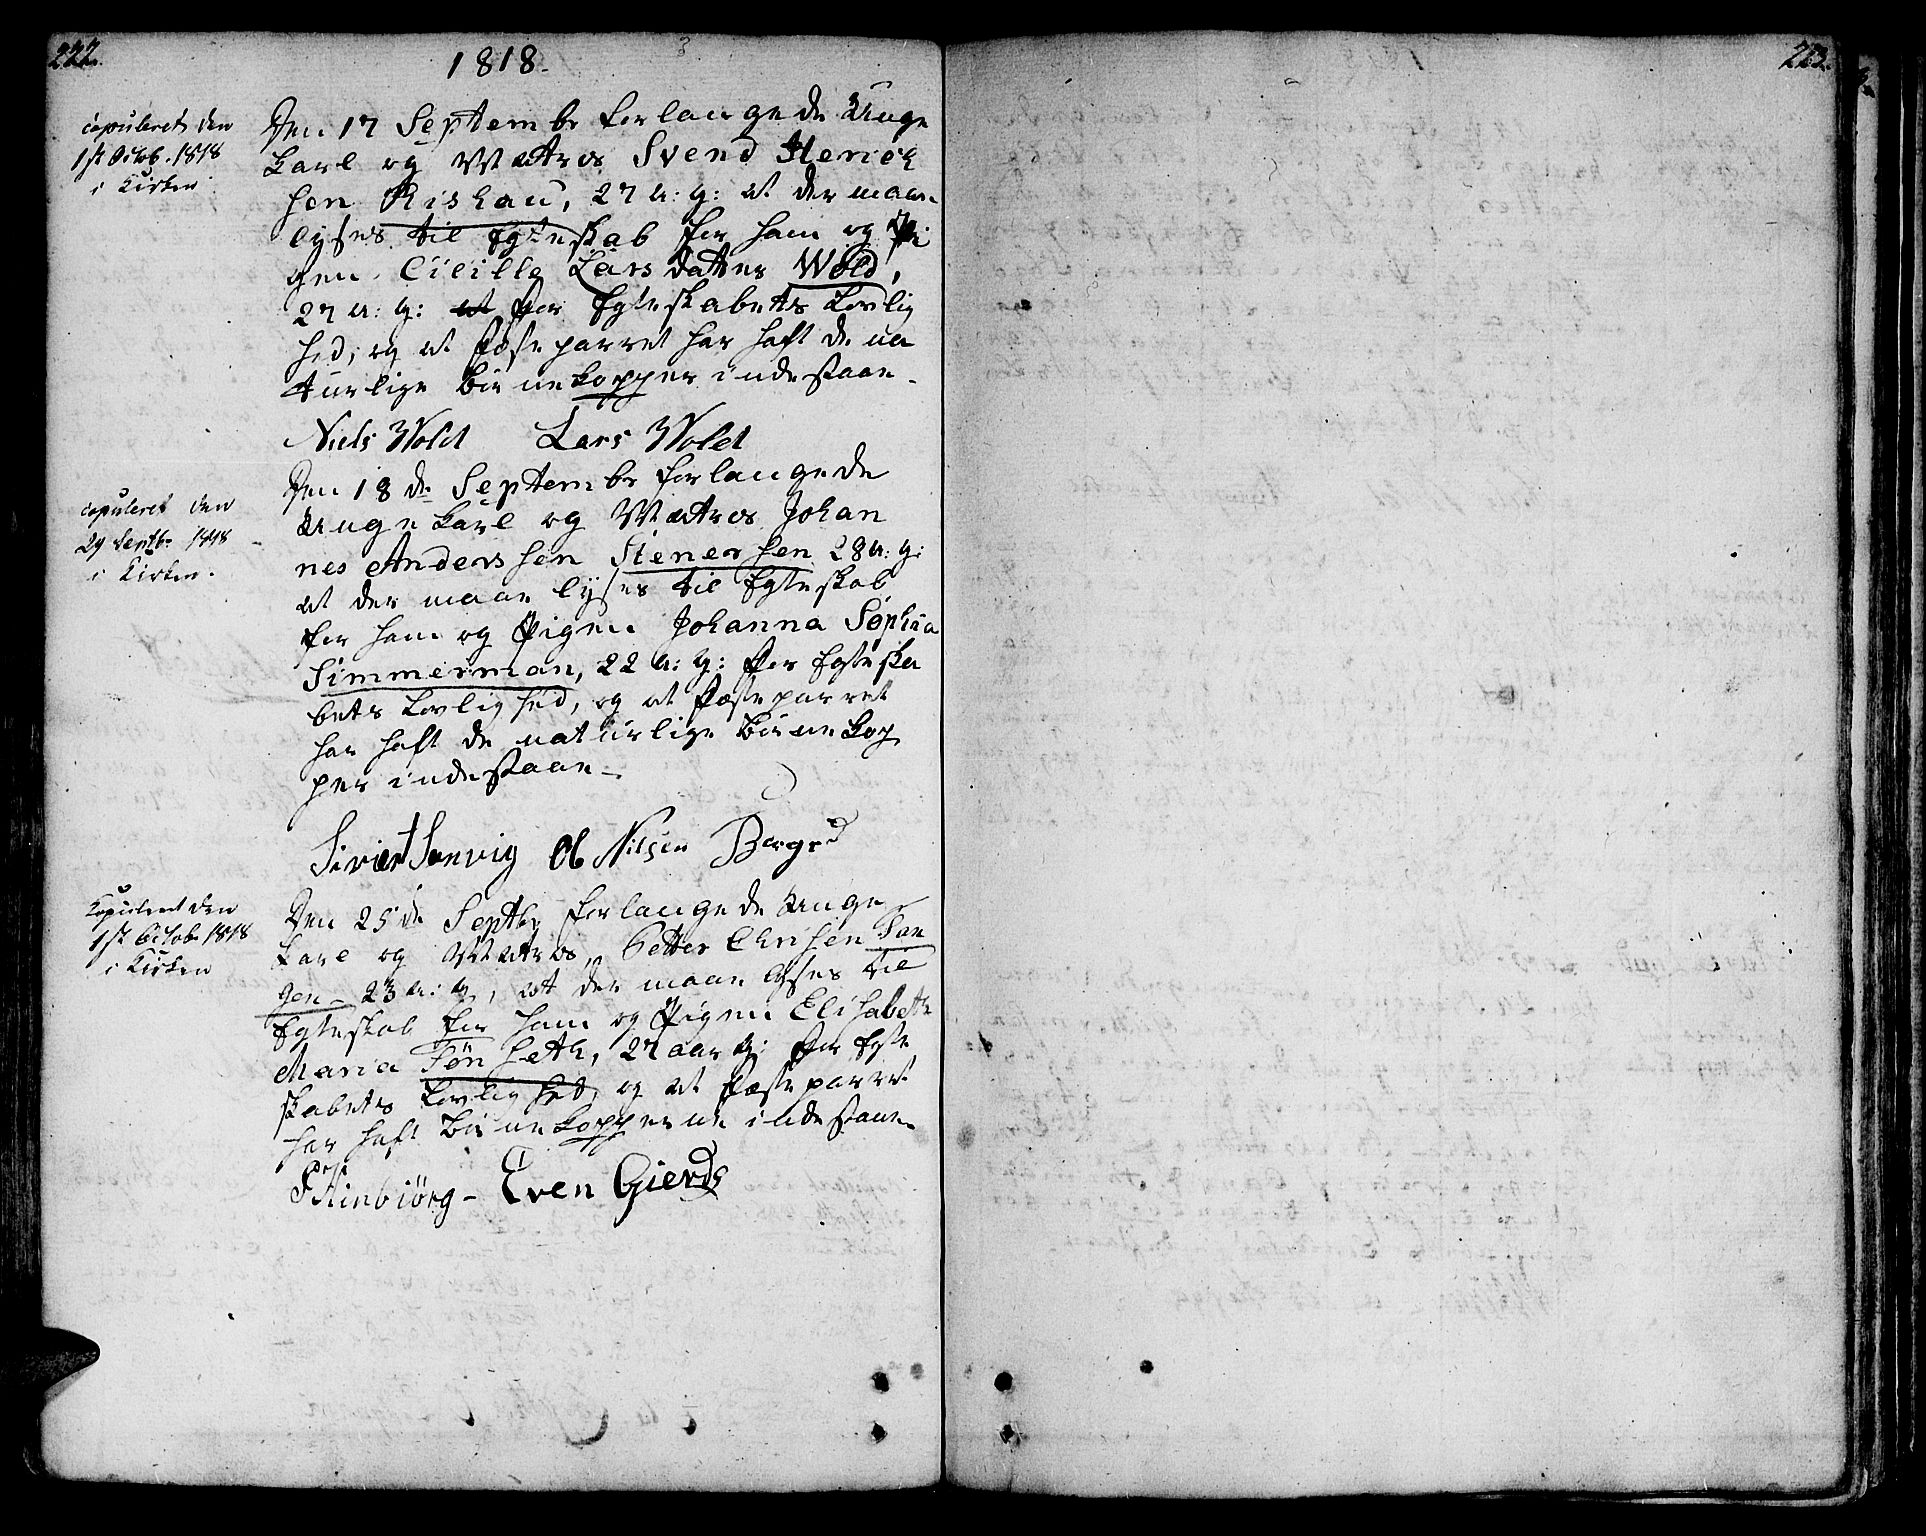 222.
1818.
223.
copuleret den
1ste Octob. 1818
i Kirken
Den 17 Septembr forlangede Unge
Karl og Matros Svend Henrich
sen Riskau, 27 a: g: at der maae
lyses til Egteskab for ham og Pi
gen Cicille Larsdatter Wold,
27 a: g: at for Egteskabets Lovlig
hed, og at Fæsteparret har haft de na
turlige Børnekopper indestaae.
Niels Wold Lars Wold
copuleret den
29 Septbr 1818
i Kirken.
Den 18de Septembr forlangede
Unge Karl og Matros Johan
nes Anderssen Stenersen 28 a: g:
at der maae lyses til Egteskab
for ham og Pigen Johanna Sophia
Simmerman, 22 a: g: For Egteska
bets Lovlighed, og at Fæsteparret
har haft de naturlige Børnekop
per indestaae
Sivert Sanvig Ol Nilsen
Kopuleret den
1ste Octob 1818
i Kirken
Den 25de Septbr forlangede Unge
Karl og Matros, Petter Chrisen Tan
gen 23 a: g, at der maae lyses til
Egteskab for ham og Pigen Elisabeth
Maria Tønseth, 27 aar g: For Egte
skabets Lovlighed, og at Fæsteparret
har haft Børnekopperne indestaae.
Stinbiörg Even Gierds